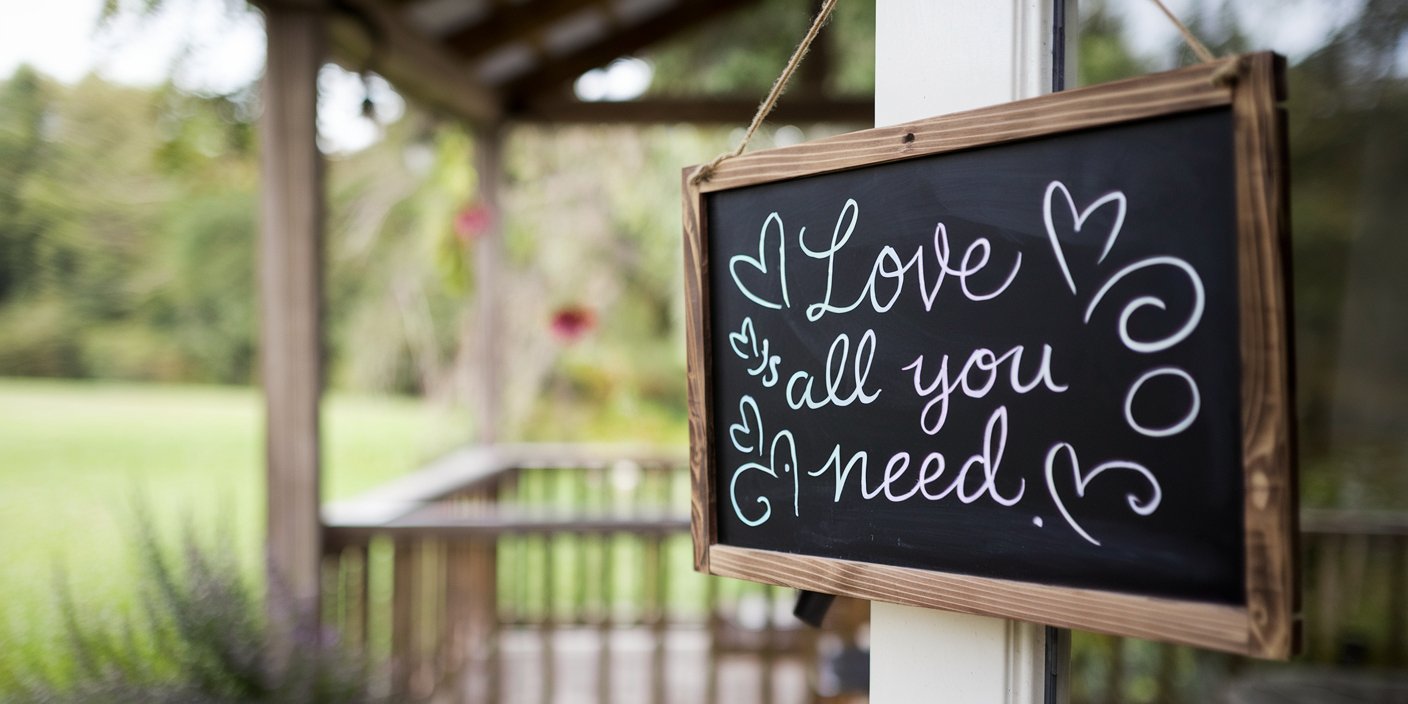 Love
all you
need.